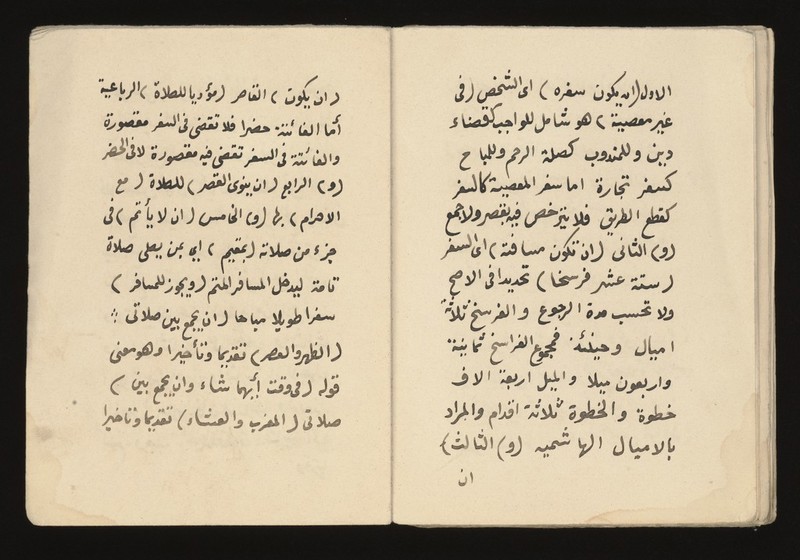 الاول (ان يكون سفره) اى الشخص (فى
غير معصية) هو شامل للواجب كقضاء
دين وللمندوب كصلة الرحم وللمباح
كسفر تجارة اما سفر المعصية كالسفر
كقطع الطريق فلا يترخص فيه بقصر ولا جمع
(و) الثانى (ان تكون مسافته) اى السفر
(ستة عشر فرسخا) تحديدا فى الاصح
ولا تحسب مدة الرجوع والفرسخ ثلاثة
اميال وحينئذ فمجموع الفراسخ ثمانية
واربعون ميلا والميل اربعة الاف
خطوة والخطوة ثلاثة اقدام والمراد
بالاميال الهاشمية (و) الثالث)
ان
(ان يكون) القاصر (مؤديا للصلاة) الرباعية
أما الفائتة حضرا فلا تقضى فى السفر مقصورة
والفائتة فى السفر تقضى فيه مقصورة لا فى الحضر
(و) الرابع (ان ينوى القصر) للصلاة (مع
الاحرام) بها (و) الخامس (ان لا يأتم) فى
جزء من صلاته (بمقيم) اى بمن يصلى صلاة
تامة ليدخل المسافر المتم (ويجوز للمسافر)
سفرا طويلا مباحا (ان يجمع بين صلاتى
(الظهر والعصر) تقديما وتأخيرا وهو معنى
قوله (فى وقت أيهما شاء وان يجمع بين)
صلاتى (المغرب والعشاء) تقديما وتاخيرا